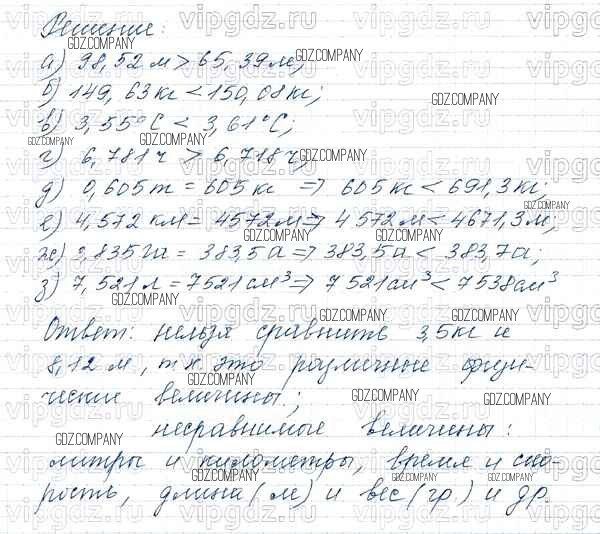 Решение:
а) 98,52 м > 65,39 м;
б) 149,63 кг < 150,08 кг;
в) 3,55°С < 3,61°С;
г) 6,781 ч > 6,718 ч;
д) 0,605 т = 605 кг => 605 кг < 691,3 кг;
е) 4,572 км = 4572 м => 4572 м < 4671,3 м;
ж) 3,835 га = 383,5 а => 383,5 а < 383,7 а;
з) 7,521 л = 7521 см³ => 7521 см³ < 7538 см³
Ответ: нельзя сравнить 3,5 кг и
8,12 м, т к это различные физи-
ческие величины;
несравнимые величины:
литры и километры, время и ско-
рость, длина (м) и вес (гр) и др.